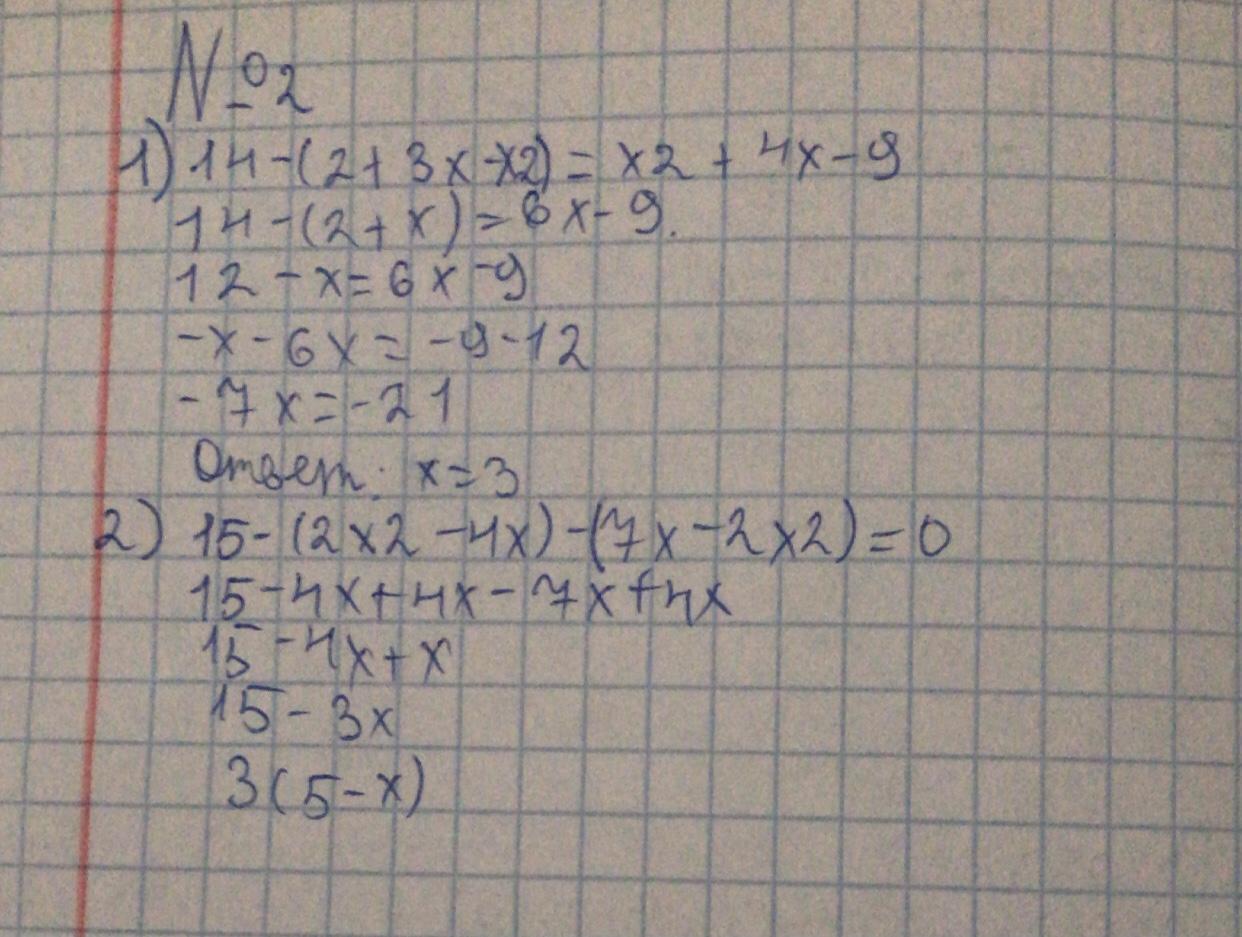 №2
1) 14-(2+3x-x2)=x2+4x-9
14-(2+x)=6x-9.
12-x=6x-9
-x-6x=-9-12
-7x=-21
Ответ: x=3
2) 15-(2x2-4x)-(7x-2x2)=0
15-4x+4x-7x+4x
15-4x+x
15-3x
3(5-x)